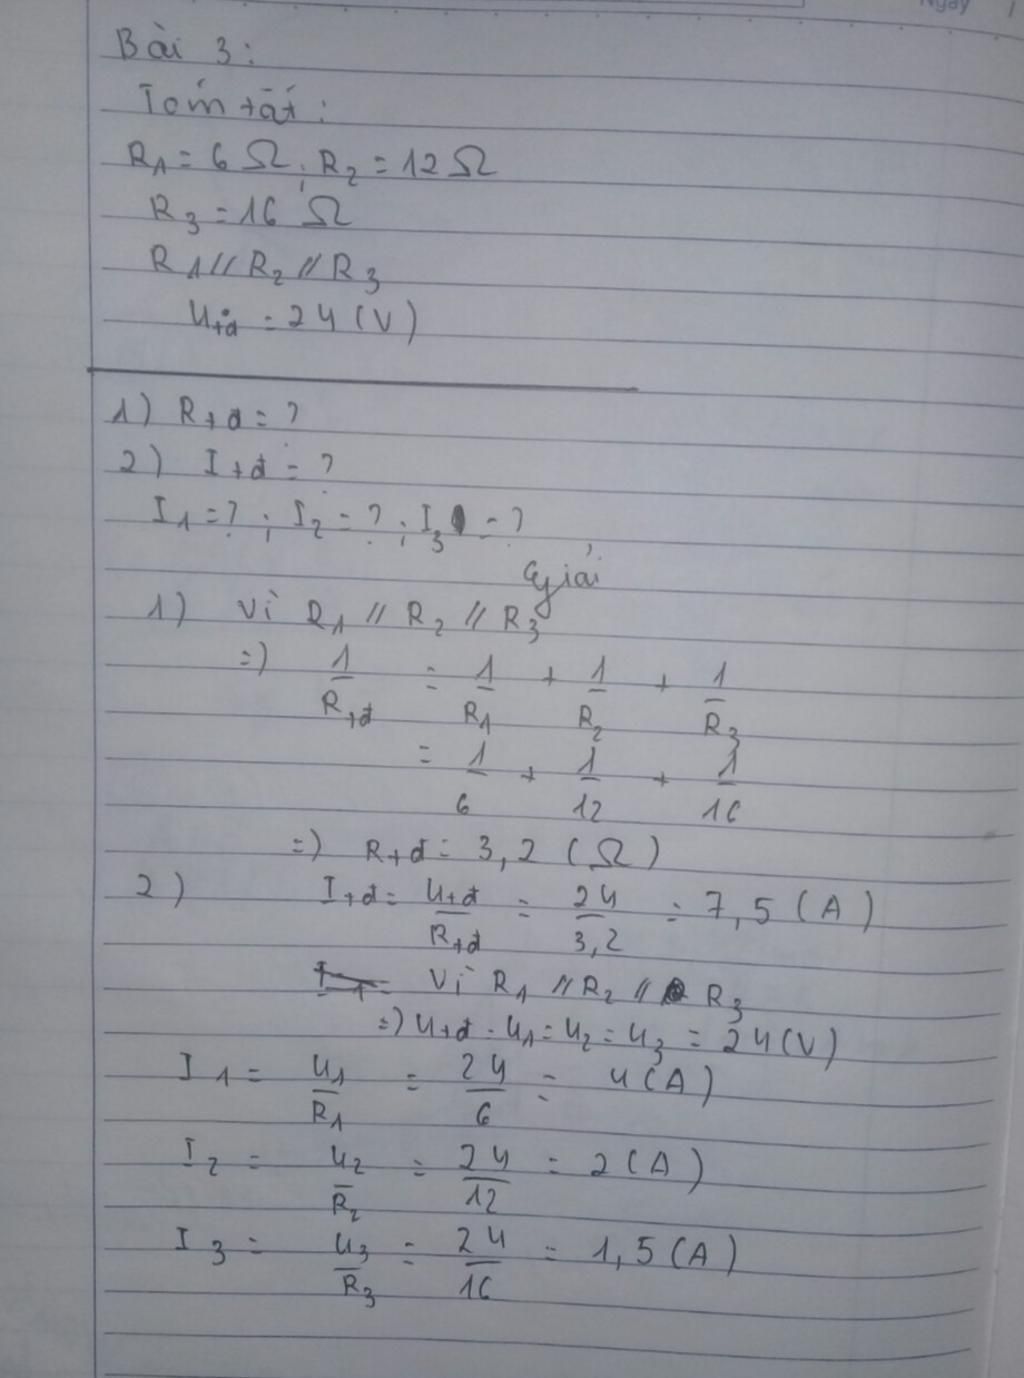 Ngày
Bài 3:
Tóm tắt:
R1 = 6 Ω; R2 = 12 Ω
R3 = 16 Ω
R1 // R2 // R3
Utđ = 24 (V)
1) Rtđ = ?
2) Itđ = ?
I1 = ?; I2 = ?; I3 = ?
Giải
1) Vì R1 // R2 // R3
=) 1/Rtđ = 1/R1 + 1/R2 + 1/R3
= 1/6 + 1/12 + 1/16
=) Rtđ = 3,2 (Ω)
2) Itđ = Utđ/Rtđ = 24/3,2 = 7,5 (A)
Vì R1 // R2 // R3
=) Utđ = U1 = U2 = U3 = 24 (V)
I1 = U1/R1 = 24/6 = 4 (A)
I2 = U2/R2 = 24/12 = 2 (A)
I3 = U3/R3 = 24/16 = 1,5 (A)